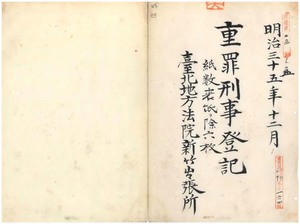 明治三十五年十二月
重罪刑事登記
紙数表紙ヲ除六枚
臺北地方法院新竹出張所